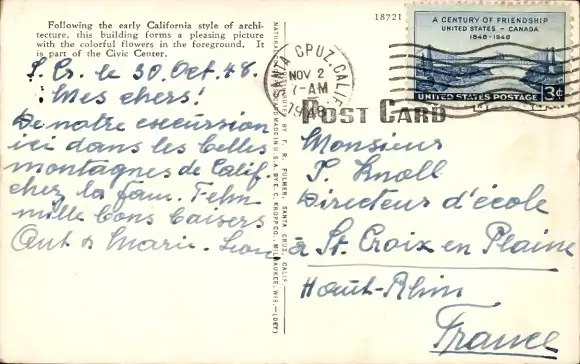 Following the early California style of archi-
tecture, this building forms a pleasing picture
with the colorful flowers in the foreground. It
is part of the Civic Center.
S. Cr. le 30. Oct. 48.
Mes chers!
De notre excursion
ici dans les belles
montagnes de Calif.
chez la fam. Fehn
mille bons baisers
Aut & Marie. Leon
NATURAL
DISTRIBUTED BY F. R. FULMER, SANTA CRUZ, CALIF.
AND MADE IN U.S.A. BY E. C. KROPP CO., MILWAUKEE, WIS.—(DEY)
18721
A CENTURY OF FRIENDSHIP
UNITED STATES - CANADA
1848-1948
UNITED STATES POSTAGE 3¢
SANTA CRUZ, CALIF.
NOV 2
7-AM
1948
POST CARD
Monsieur
Directeur d'école
à St. Croix en Plaine
Haut-Rhin
France